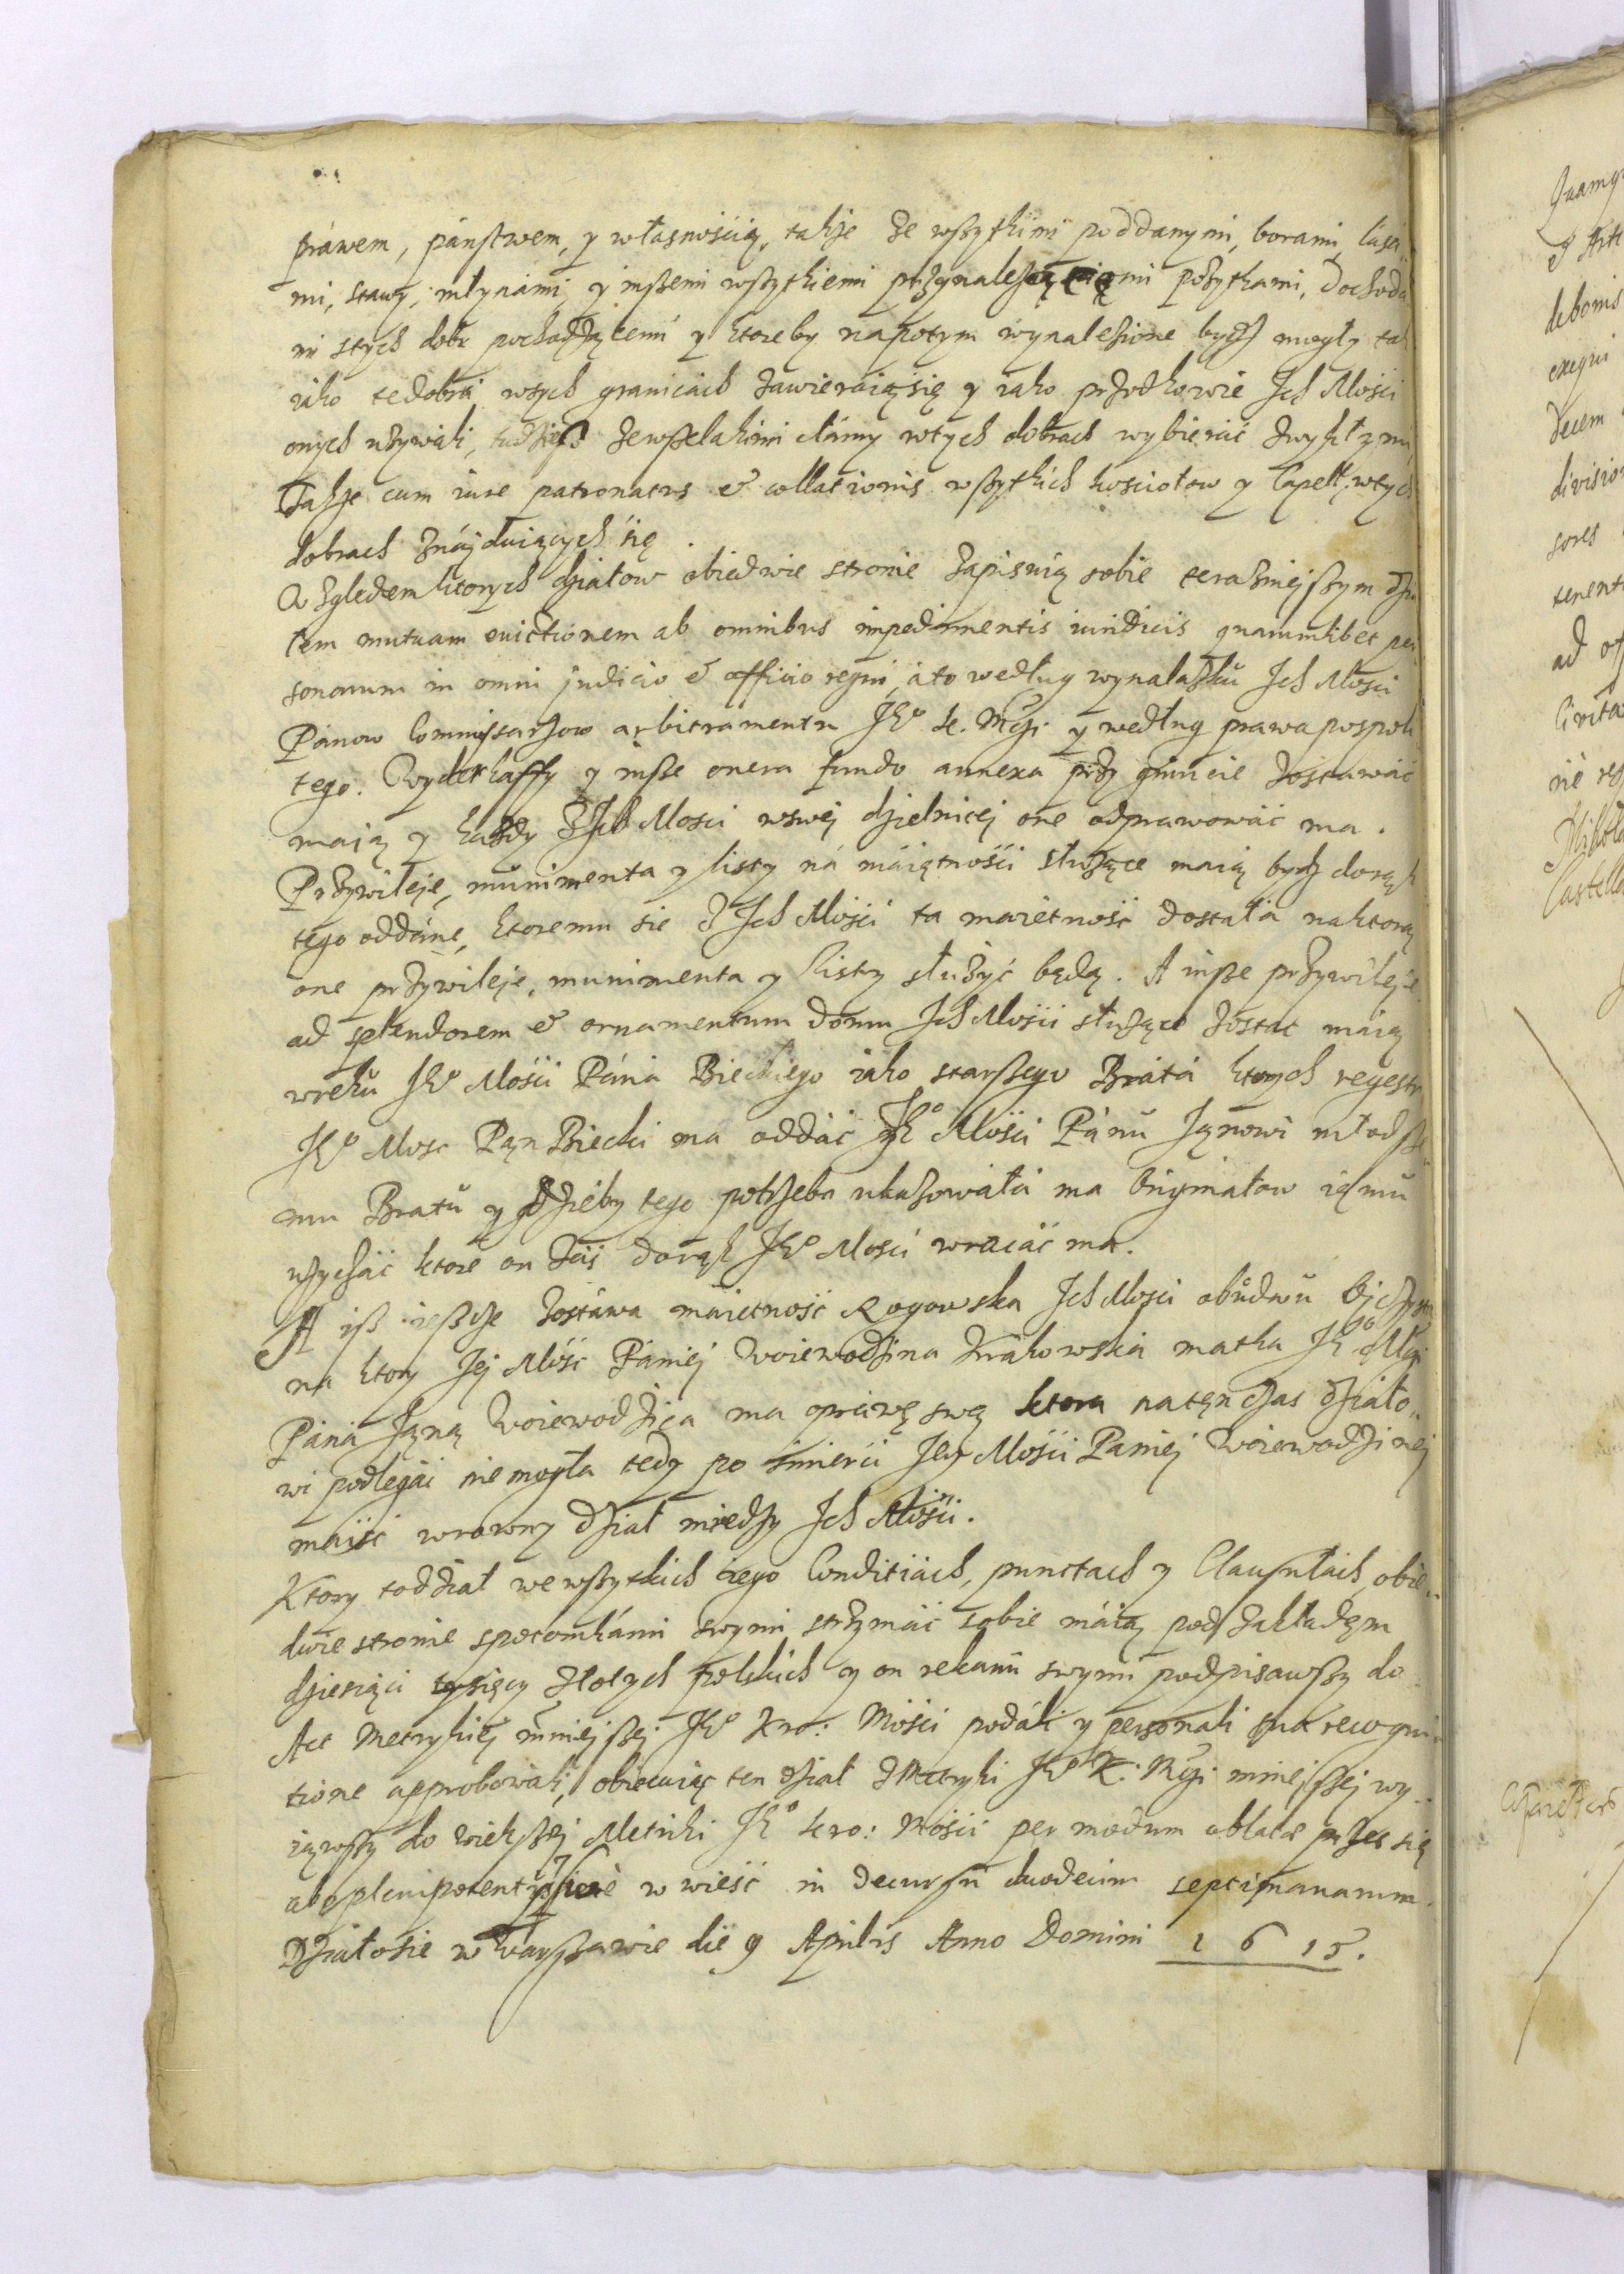 prawem, państwem, y własnością, także ze wszytkimi poddanymi, borami, lasa
mi, stawy, młynami y inszemi wszytkiemi przynależącemi pożytkami, dochoda
mi s tych dobr pochodzącemi y ktoreby napotym wynalesione bydz mogły tak
iako te dobra w tych granicach zawieraią się y iako przodkowie Ich Mości
onych używali, tudziesz ze wszelakimi cłámy w tych dobrach wybierać zwykłymi
Także cum iure patronatus & collationis wszytkich kosciołow y Capell, w tych
dobrach znáyduiących się.
Względem ktorych działow obiedwie stronie zapisuią sobie terazniejszym dzia
łem mutuam euictionem ab omnibus impedimentis iuridicis quarumlibet per
sonarum in omni judicio & officio regni, á to według wynalazku Ich Mości
Panow Commissarzow arbitramentu JEº K. Mści y według prawa pospoli
tego. Wyderkaffy y insze onera fundo annexa przy gruncie zostawać
maią y każdy z Ich Mosci w swej dzielnicej one odprawować ma.
Przywileje, munimenta y listy ná máiętności służące maią bydz do rąk
tego oddáne, ktoremu sie z Ich Mości ta maiętność dostała na ktorą
one przywileje, munimenta y listy służyć będą. A insze przywileje
ad splendorem & ornamentum domu Ich Mości służące zostać maią
w ręku JEº Mości Pána Bieckiego iáko starszego Bráta ktorych regestr
JEº Mosc Pan Biecki ma oddáć JEº Mości Pánu Janowi młodsze
mu Bratu y gdzieby tego potrzeba ukazowała ma Originałow iemu
użyczać ktore on zaś do rąk JEº Mosci wraciać ma.
A isz ieszcze zostáwa maiętność Rogowska Ich Mosci obudwu Ojczysta
na ktory Jej Mość Paniej Woiewodzina Krakowska matka JEº Mści
Pána Jana Woiewodzica ma oprawę swą ktora natęnczas działo
wi podlegáć nie mogła tedy po śmierci Jey Mości Paniej Woiewodzinej
ma iść w rowny dział miedzy Ich Mości.
Ktory to dział we wszytkich iego Conditiach, punctach y Clausulach obie
dwie stronie s potomkámi swymi strzymáć sobie máią pod zakładem
dziesiąci tysięcy złotych polskich y on rekami swymi podpisawszy do
Act Metrykiej mniejszej JEº Kro: Mości podáli y personali sua recogni
tione approbowali, obiecuiąc ten dział z Metryki JEº K. Mści mniejszej wy
iąwszy do wiekszej Metriki JEº Kro: Mości per modum oblatæ przes się
abo plenipotenty w wieść in decursu duodecim septimanarum.
Działo sie w Warszawie die 9 Aprilis Anno Domini 1615.